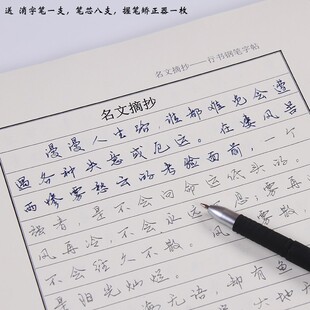 送 消字笔一支，笔芯八支，握笔矫正器一枚
名文摘抄——行书钢笔字帖
名文摘抄
漫漫人生路，谁都难免会遭
遇各种失意或厄运。在凄风苦
雨惨雾愁云的考验面前，一个
强者，是不会向命运低头的。
风再冷，不会永远
不会经久不散。风 雾散，
是阳光灿烂。
海无语，却有鱼
大地